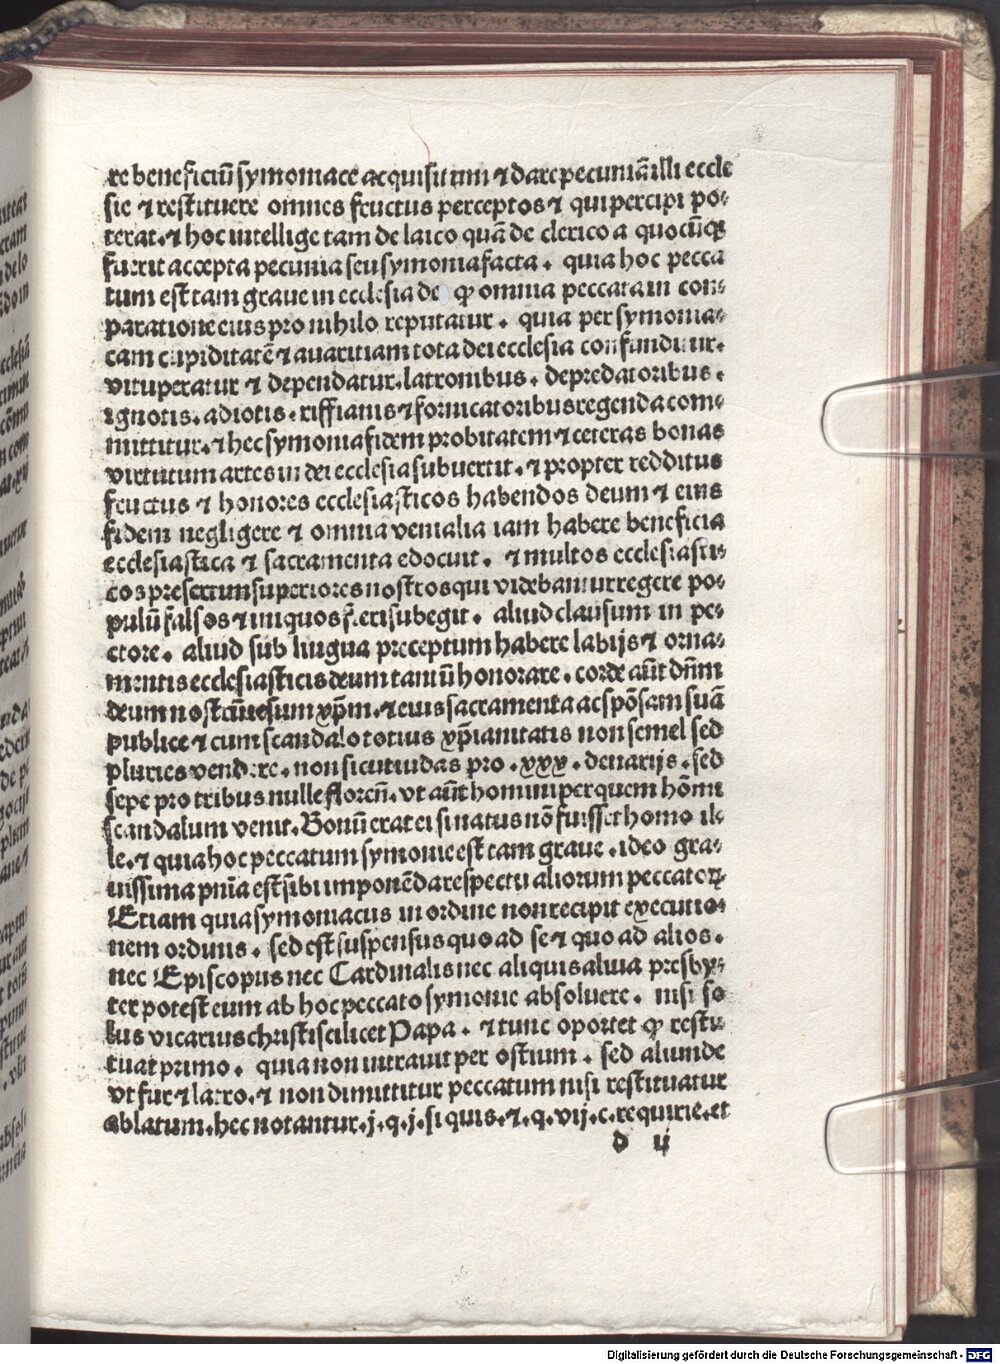 re beneficiū symoniace acquisitum ⁊ dare pecuniā illi eccle
sie ⁊ restituere omnes fructus perceptos ⁊ qui percipi po⸗
terat.⁊ hoc intellige tam de laico quā de clerico a quocūqꝫ
fuerit accepta pecunia seu symonia facta . quia hoc pecca
tum est tam graue in ecclesia dei ꝙ omnia peccata in com⸗
paratione eius pro nihilo reputatur . quia per symonia⸗
cam cupiditatē ⁊ auaritiam tota dei ecclesia confunditur.
vituperatur ⁊ dependatur.latronibus . depredatoribus .
ignotis. adiotis . riffianis ⁊ fornicatoribus regenda com⸗
mittitur.⁊ hec symonia fidem probitatem ⁊ ceteras bonas
virtutum artes in dei ecclesia subuertit . ⁊ propter redditus
fructus ⁊ honores ecclesiasticos habendos deum ⁊ eius
fidem negligere ⁊ omnia venialia iam habere beneficia
ecclesiastica ⁊ sacramenta edocuit . ⁊ multos ecclesiasti⸗
cos presertim superiores nostros qui videbantur regere po⸗
pulū falsos ⁊ iniquos fieri subegit . aliud clausum in pe⸗
ctore . aliud sub lingua preceptum habere labijs ⁊ orna⸗
mentis ecclesiasticis deum tamū honorare . corde aūt dn̄m
deum nostrū iesum xp̄m.⁊ eius sacramenta ac spōsam suā
publice ⁊ cum scandalo totius xp̄ianitatis non semel sed
pluries vendere . non sicut iudas pro .xxx. denarijs . sed
sepe pro tribus nulle floreñ. vt aūt homini per quem hōmi
scandalum venit . Bonū erat ei si natus nō fuisset homo il⸗
le.⁊ quia hoc peccatum symonie est tam graue . ideo gra⸗
uissima pn̄ia est sibi imponēda respectu aliorum peccatoꝝ
Etiam quia symoniacus in ordine non recipit executio⸗
nem ordinis . sed est suspensus quo ad se ⁊ quo ad alios .
nec Episcopus nec Cardinalis nec aliquis alius presby⸗
ter potest eum ab hoc peccato symonie absoluere . nisi so
lus vicarius christi scilicet Papa . ⁊ tunc oportet ꝙ resti⸗
tuat primo . quia non intrauit per ostium . sed aliunde
vt fur ⁊ latro.⁊ non dimittitur peccatum nisi restituatur
ablatum.hec notantur.j.q.j.si quis.⁊.q.vij.c.requirie.et
d ij
Digitalisierung gefördert durch die Deutsche Forschungsgemeinschaft - DFG